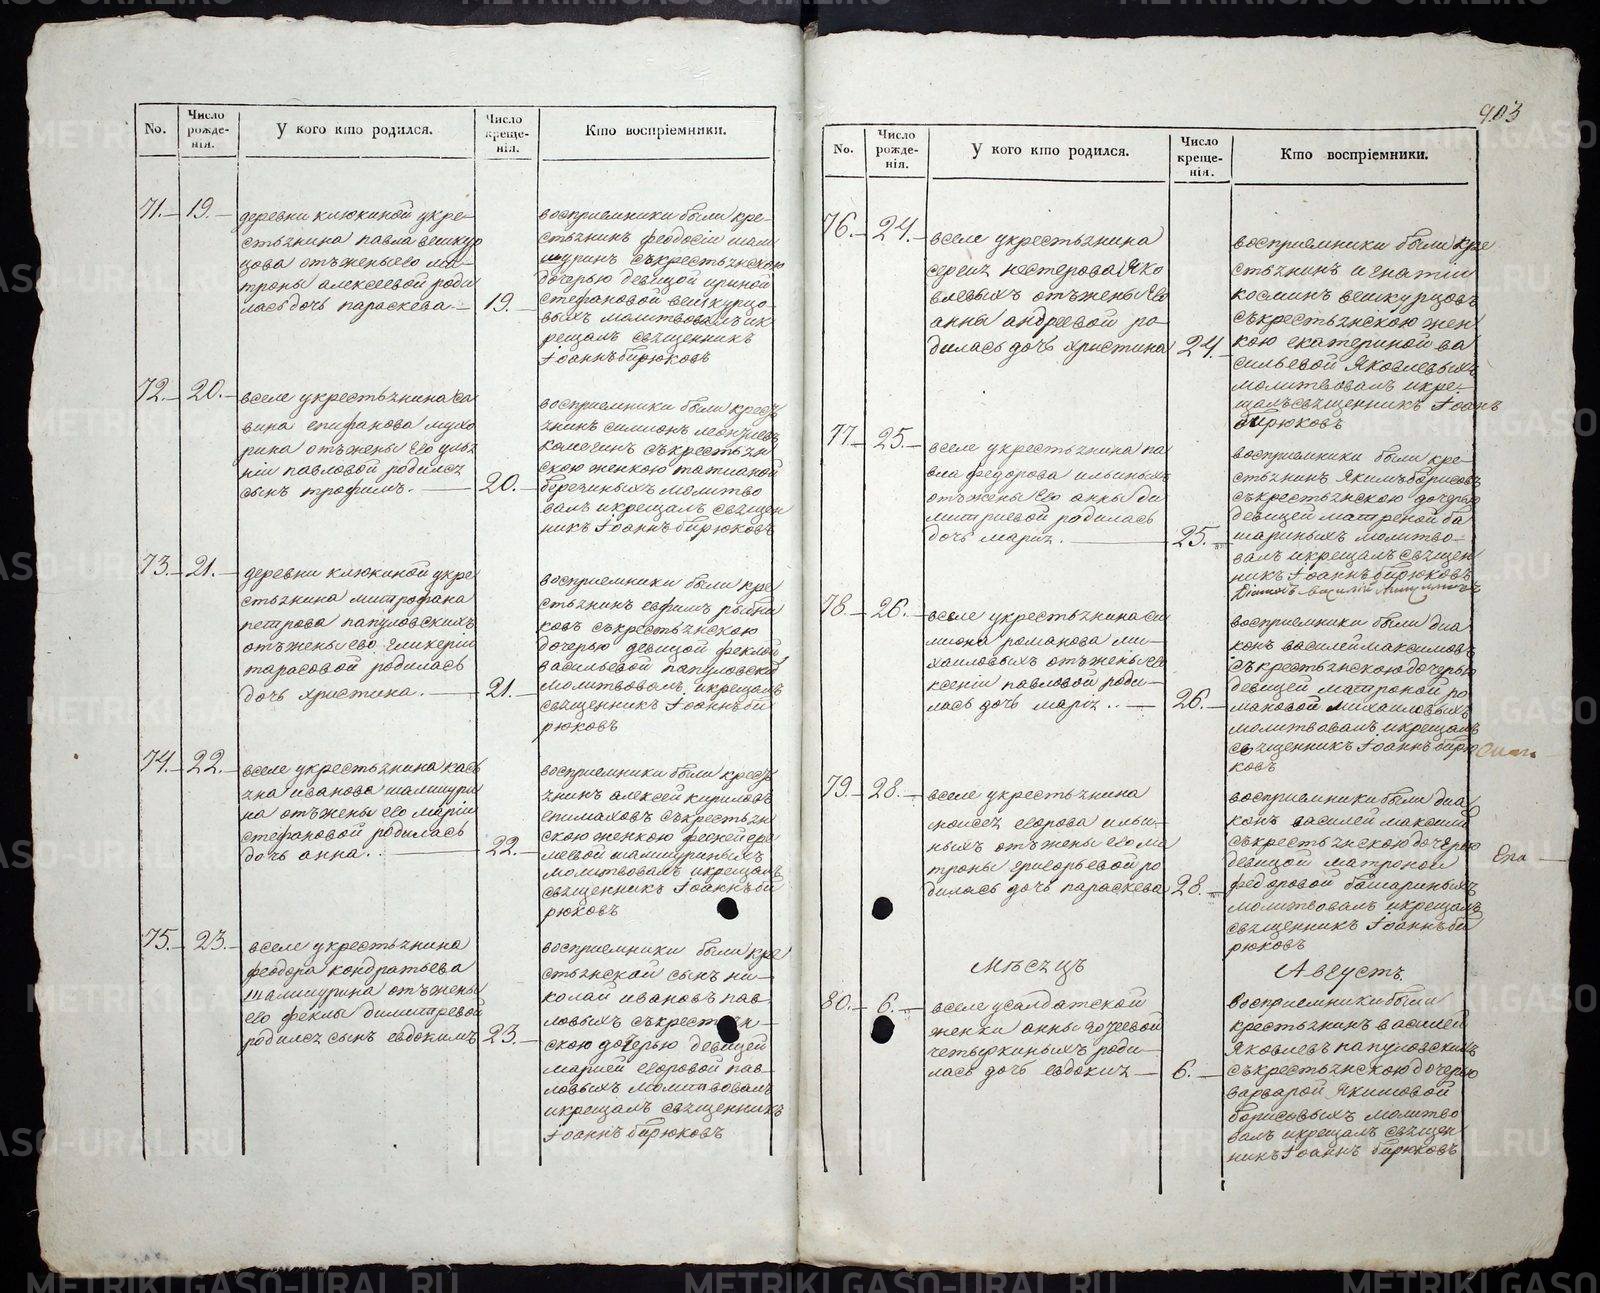 903
No.
Число рожде- нія.
У кого кто родился.
Число креще- нія.
Кто воспріемники.
71. 19.
деревни клюкиной укре-
стьянина павла вешкур
цова отъ жены его ма-
троны алексеевой роди
лась дочь параскева 19.
восприемники были кре-
стьянинъ феодосіи шам
шуринъ съкрестьянскою
дочерью девицой ириной
стефановой вешкурцо-
выхъ молитвовалъ ик
рещалъ священникъ
Іоаннъ бирюковъ
72. 20.
вселе укрестьянина са
вина епифанова мухо
рина отъ жены его улья
ніи павловой родился
сынъ трофимъ. 20.
восприемники были кресть
янинъ симионъ леонтиевъ
съкрестьян
скою женкою татианой
молитво
валъ икрещалъ священ
никъ Іоаннъ бирюковъ
73. 21.
деревни клюкиной укре
стьянина митрофана
петрова папуловскихъ
отъ жены его гликеріи
тарасовой родилась
дочь христина. 21.
восприемники были кре
стьянинъ евфимъ рыбни
ковъ съкрестьянскою
дочерью девицой феклой
васильевой папуловской
молитвовалъ икрещалъ
священникъ Іоаннъ би
рюковъ
74. 22.
вселе укрестьянина кась
яна иванова шамшури
на отъ жены его маріи
стефановой родилась
дочь анна. 22.
восприемники были кресть
янинъ алексей кириловъ
епимаховъ съкрестьян
скою женкою
шамшуриныхъ
молитвовалъ икрещалъ
священникъ Іоаннъ би
рюковъ
75. 23.
вселе укрестьянина
феодора кондратьева
шамшурина отъ жены
его феклы димитревой
родился сынъ евдокимъ 23.
восприемники были кре
стьянской сынъ ни-
колай ивановъ пав
ловыхъ съкрестьян-
скою дочерью девицей
марией егоровой пав-
ловыхъ молитвовалъ
икрещалъ священникъ
Іоаннъ бирюковъ
No.
Число рожде- нія.
У кого кто родился.
Число креще- нія.
Кто воспріемники.
76. 24.
вселе укрестьянина
сергия нестерова Яко
влевыхъ отъ жены Его
анны андреевой ро-
дилась дочь христина 24.
восприемники были кре
стьянинъ игнатіи
косминъ вешкурцовъ
съкрестьянскою жен
кою екатериной ва
сильевой Яковлевыхъ
молитвовалъ икре-
щалъ священникъ Іоанъ
бирюковъ
77. 25.
вселе укрестьянина па
вла федорова ильиныхъ
отъ жены его анны ди
митриевой родилась
дочь мария. 25.
восприемники были кре-
стьянинъ Якимъ борисовъ
съкрестьянскою дочерью
девицей матреной ба
шариныхъ молитво-
валъ икрещалъ священ
никъ Іоаннъ бирюковъ
78. 26.
вселе укрестьянина си
миона романова ми-
хаиловыхъ отъ жены его
ксеніи павловой роди-
лась дочь мария.. 26.
восприемники были диа
конъ василей максимовъ
съкрестьянскою дочерью
девицей матроной ро
мановой михаиловыхъ
молитвовалъ икрещалъ
священникъ Іоаннъ бирю
ковъ
79. 28.
вселе укрестьянина
моисея егорова ильи-
ныхъ отъ жены его ма
троны григорьевой ро
дилась дочь параскева 28.
восприемники были диа
конъ василей максимо
съкрестьянскою дочерью
девицой матроной
федоровой башариныхъ
молитвовалъ икрещалъ
священникъ Іоаннъ би
рюковъ
Мѣсяцъ Августъ
80. 6.
вселе усалдатской
женки анны
четыркиныхъ роди-
лась дочь евдокия 6.
восприемники были
крестьянинъ василей
Яковлевъ папуловскихъ
съкрестьянскою дочерью
варварой Якимовой
борисовыхъ молитво
валъ икрещалъ священ
никъ Іоаннъ бирюковъ
METRIKI.GASO-URAL.RU